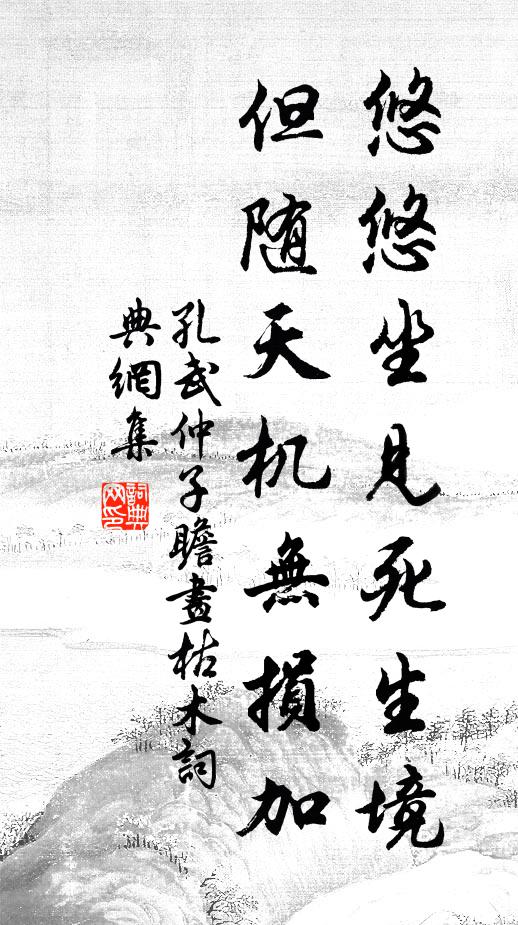 悠悠坐見死生境
但随天机無損加
孔武仲子瞻畫枯木詞
典網集
詞典
网印